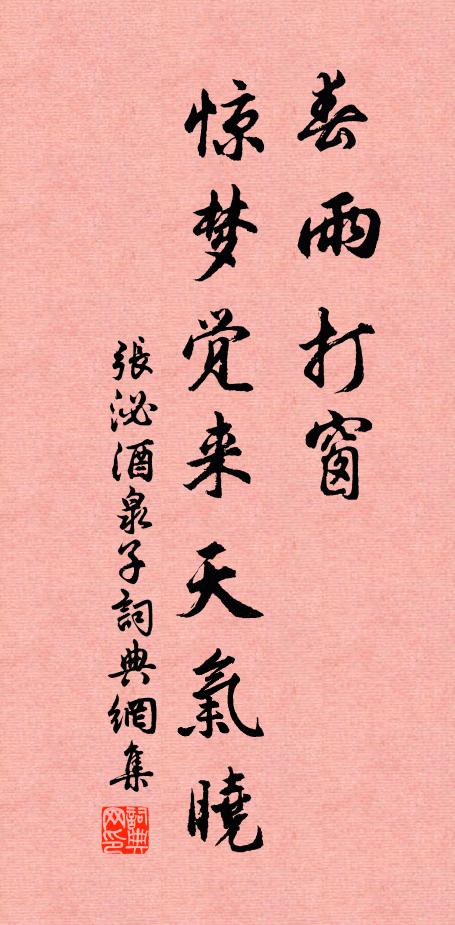 春雨打窗
惊梦觉来天氣曉
張泌酒泉子詞典網集
詞典网印